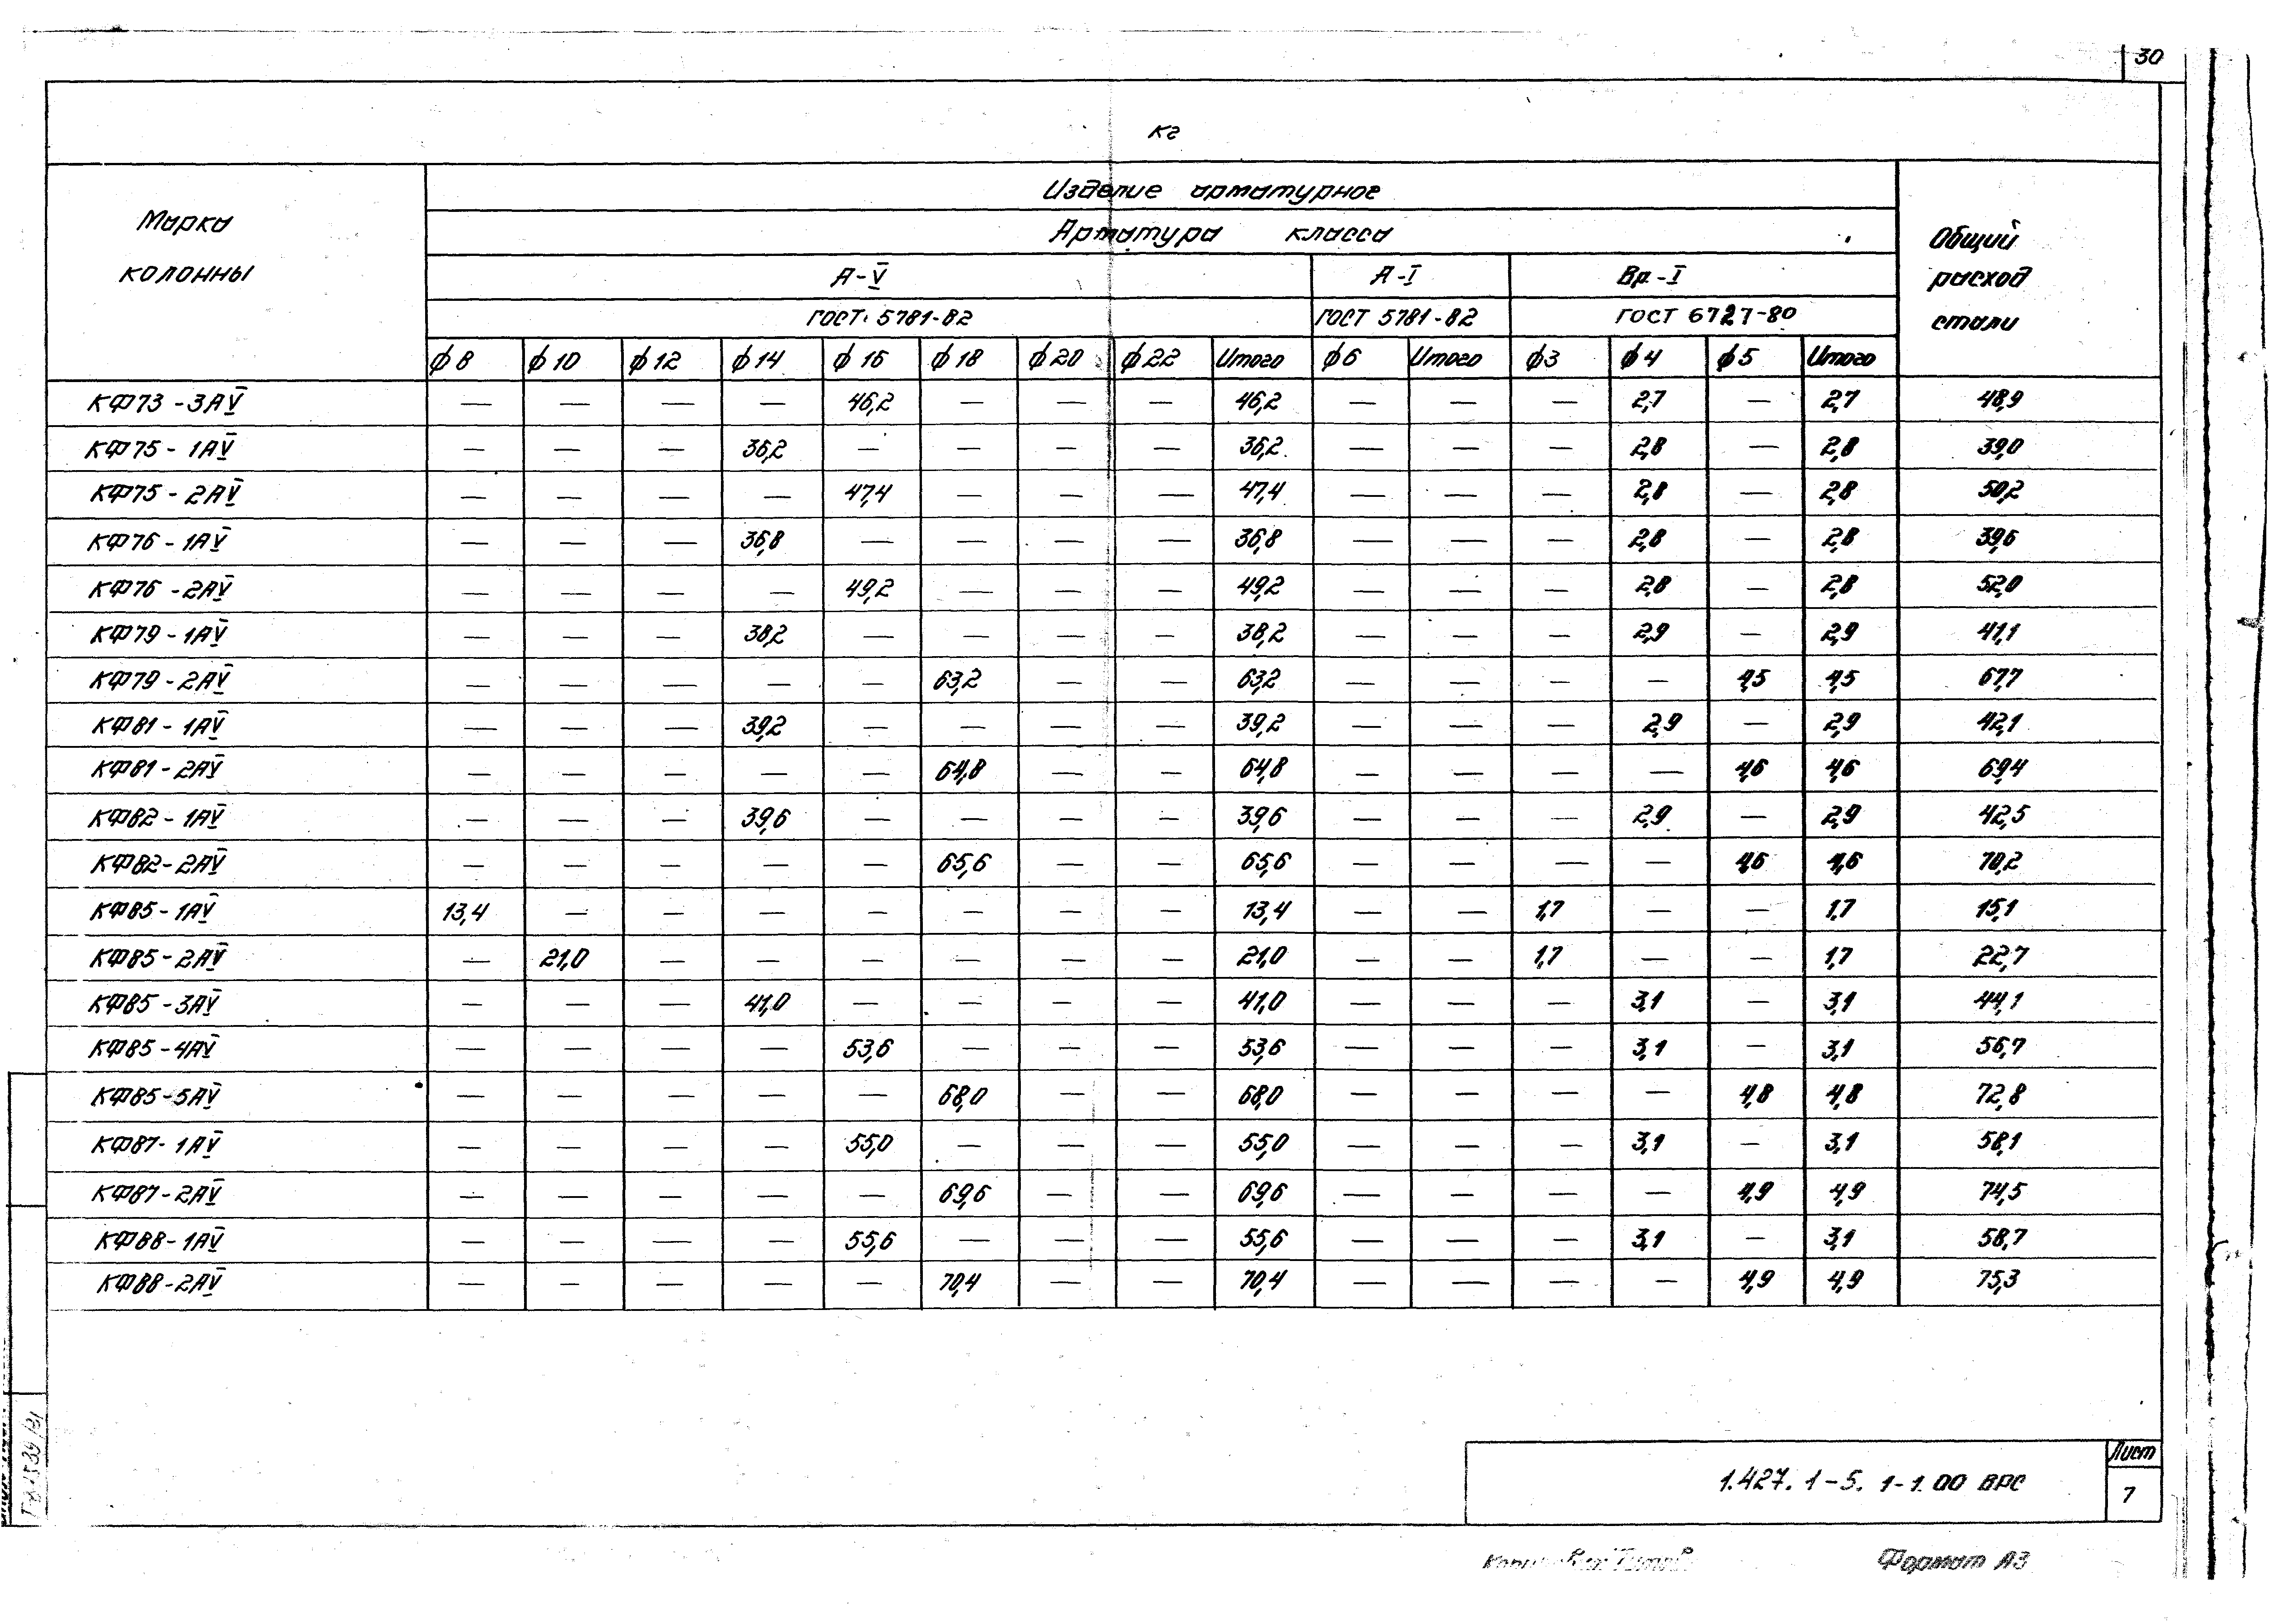 30
кг
Марка колонны
Изделие арматурное
Арматура класса
Общий расход стали
А-V А-I Вр-I
ГОСТ 5781-82 ГОСТ 5781-82 ГОСТ 6727-80
ф8 ф10 ф12 ф14 ф16 ф18 ф20 ф22 Итого ф6 Итого ф3 ф4 ф5 Итого
КФ73-3АV — — — — 46,2 — — — 46,2 — — — 2,7 — 2,7 48,9
КФ75-1АV — — — 36,2 — — — — 36,2 — — — 2,8 — 2,8 39,0
КФ75-2АV — — — — 47,4 — — — 47,4 — — — 2,8 — 2,8 50,2
КФ76-1АV — — — 36,8 — — — — 36,8 — — — 2,8 — 2,8 39,6
КФ76-2АV — — — — 49,2 — — — 49,2 — — — 2,8 — 2,8 52,0
КФ79-1АV — — — 38,2 — — — — 38,2 — — — 2,9 — 2,9 41,1
КФ79-2АV — — — — — 63,2 — — 63,2 — — — — 4,5 4,5 67,7
КФ81-1АV — — — 39,2 — — — — 39,2 — — — 2,9 — 2,9 42,1
КФ81-2АV — — — — — 64,8 — — 64,8 — — — — 4,6 4,6 69,4
КФ82-1АV — — — 39,6 — — — — 39,6 — — — 2,9 — 2,9 42,5
КФ82-2АV — — — — — 65,6 — — 65,6 — — — — 4,6 4,6 70,2
КФ85-1АV 13,4 — — — — — — — 13,4 — — 1,7 — — 1,7 15,1
КФ85-2АV — 21,0 — — — — — — 21,0 — — 1,7 — — 1,7 22,7
КФ85-3АV — — — 41,0 — — — — 41,0 — — — 3,1 — 3,1 44,1
КФ85-4АV — — — — 53,6 — — — 53,6 — — — 3,1 — 3,1 56,7
КФ85-5АV — — — — — 68,0 — — 68,0 — — — — 4,8 4,8 72,8
КФ87-1АV — — — — 55,0 — — — 55,0 — — — 3,1 — 3,1 58,1
КФ87-2АV — — — — — 69,6 — — 69,6 — — — — 4,9 4,9 74,5
КФ88-1АV — — — — 55,6 — — — 55,6 — — — 3,1 — 3,1 58,7
КФ88-2АV — — — — — 70,4 — — 70,4 — — — — 4,9 4,9 75,3
1.427.1-5.1-1.00 ВРС
Лист
7
Формат А3